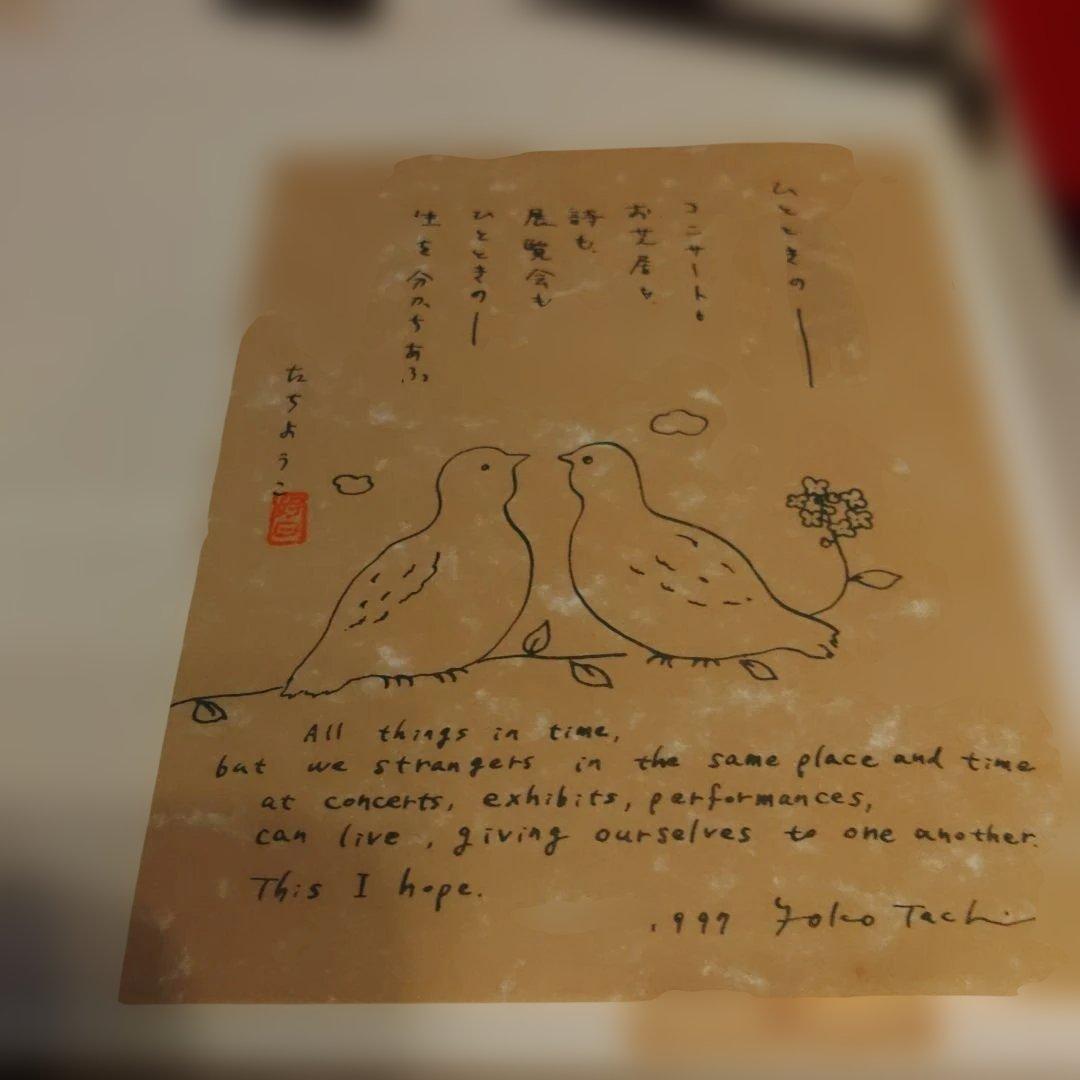 ひとときの―
コンサートも
お芝居も
詩も、
展覧会も
ひとときの―
生を分かちあふ
たちようこ
All things in time,
but we strangers in the same place and time
at concerts, exhibits, performances,
can live, giving ourselves to one another.
This I hope.
1997 Yoko Tachi